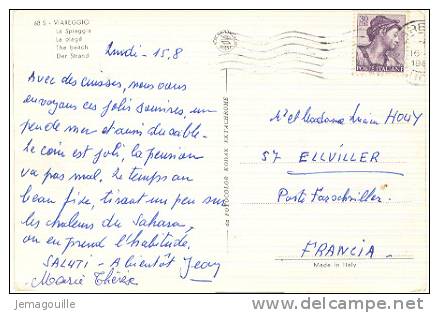 68 S - VIAREGGIO
La Spiaggia
La plage
The beach
Der Strand
Lundi - 15.8
Avec des cuisses, nous vous
envoyons ces jolis sourires, un
peu de mer et aussi du sable.
Le coin est joli, la pension
va pas mal. Le temps au
beau fixe, tirant un peu sur
les chaleurs du Sahara,
on en prend l'habitude.
SALUTI - A bientôt Jean
Marie Thérèse
FOTOCOLOR KODAK EKTACHROME
POSTE ITALIANE
Mr et Madame HOUY
57 ELLVILLER
Poste Farschviller
FRANCIA
Made in Italy
Jemagouille
http://www.delcampe.net